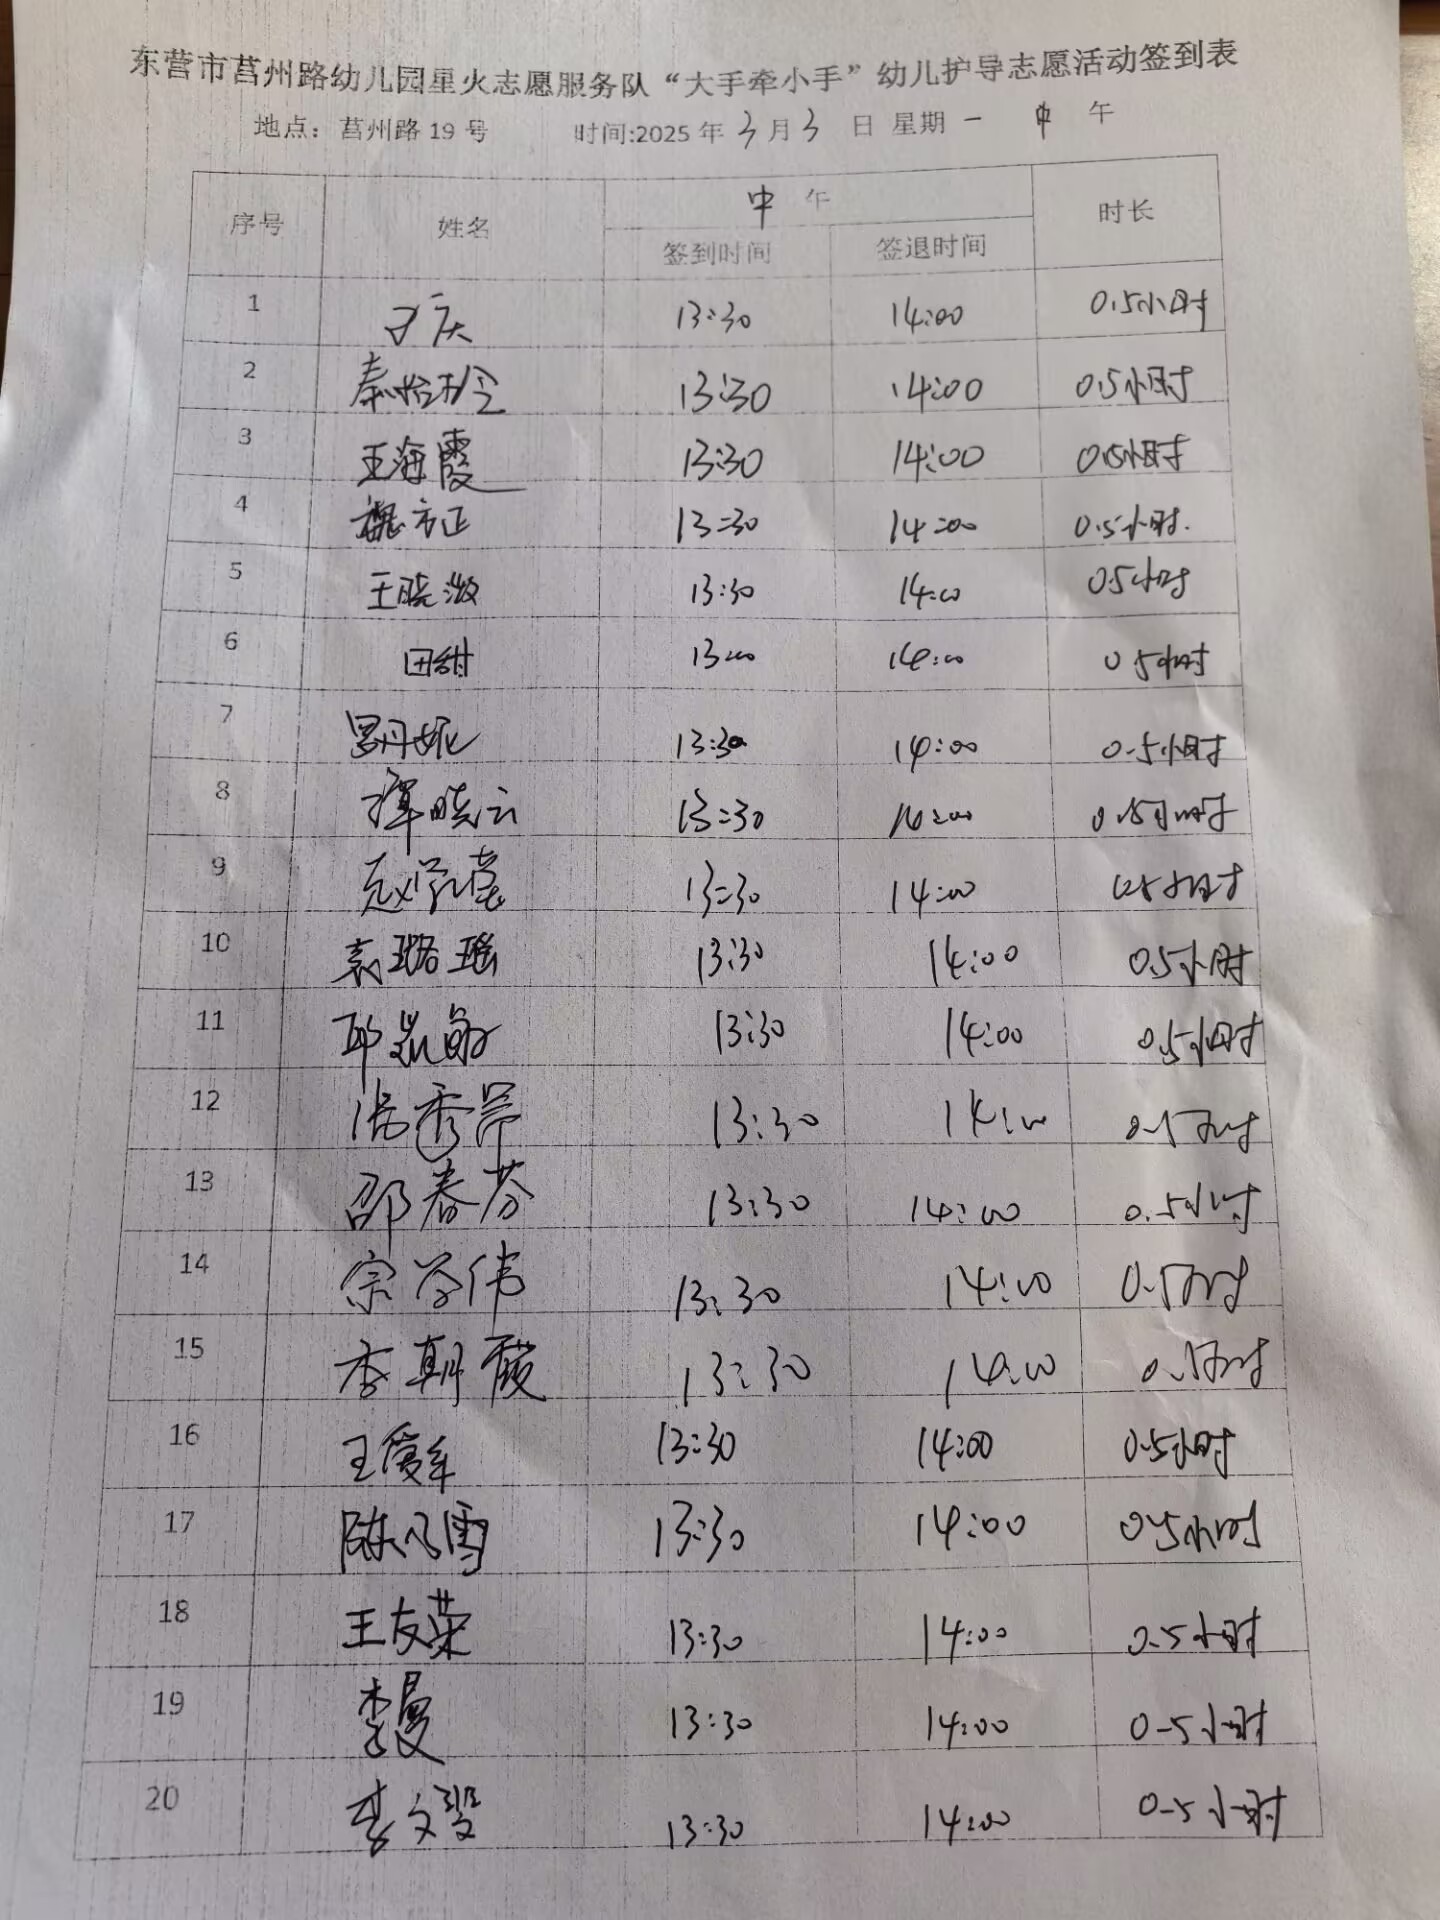 东营市莒州路幼儿园星火志愿服务队“大手牵小手”幼儿护导志愿活动签到表
地点：莒州路19号 时间:2025年3月3日 星期一 中午
序号 姓名 中午 时长
签到时间 签退时间
1 庆 13:30 14:00 0.5小时
2 秦怡玲 13:30 14:00 0.5小时
3 王海霞 13:30 14:00 0.5小时
4 魏方正 13:30 14:00 0.5小时.
5 王晓 13:30 14:00 0.5小时
6 田甜 14:00 0.5小时
7 罗丹妮 13:30 14:00 0.5小时
8 晓云 13:30 14:00 0.5小时
9 赵 13:30 14:00 0.5小时
10 袁璐瑶 13:30 14:00 0.5小时
11 邱 13:30 14:00 0.5小时
12 秀 13:30 14:00 0.5小时
13 邵春芬 13:30 14:00 0.5小时
14 宗学伟 13:30 14:00 0.5小时
15 李朝霞 13:30 14:00 0.5小时
16 王爱 13:30 14:00 0.5小时
17 陈雪 13:30 14:00 0.5小时
18 王友荣 13:30 14:00 0.5小时
19 李曼 13:30 14:00 0.5小时
20 李文 13:30 14:00 0.5小时